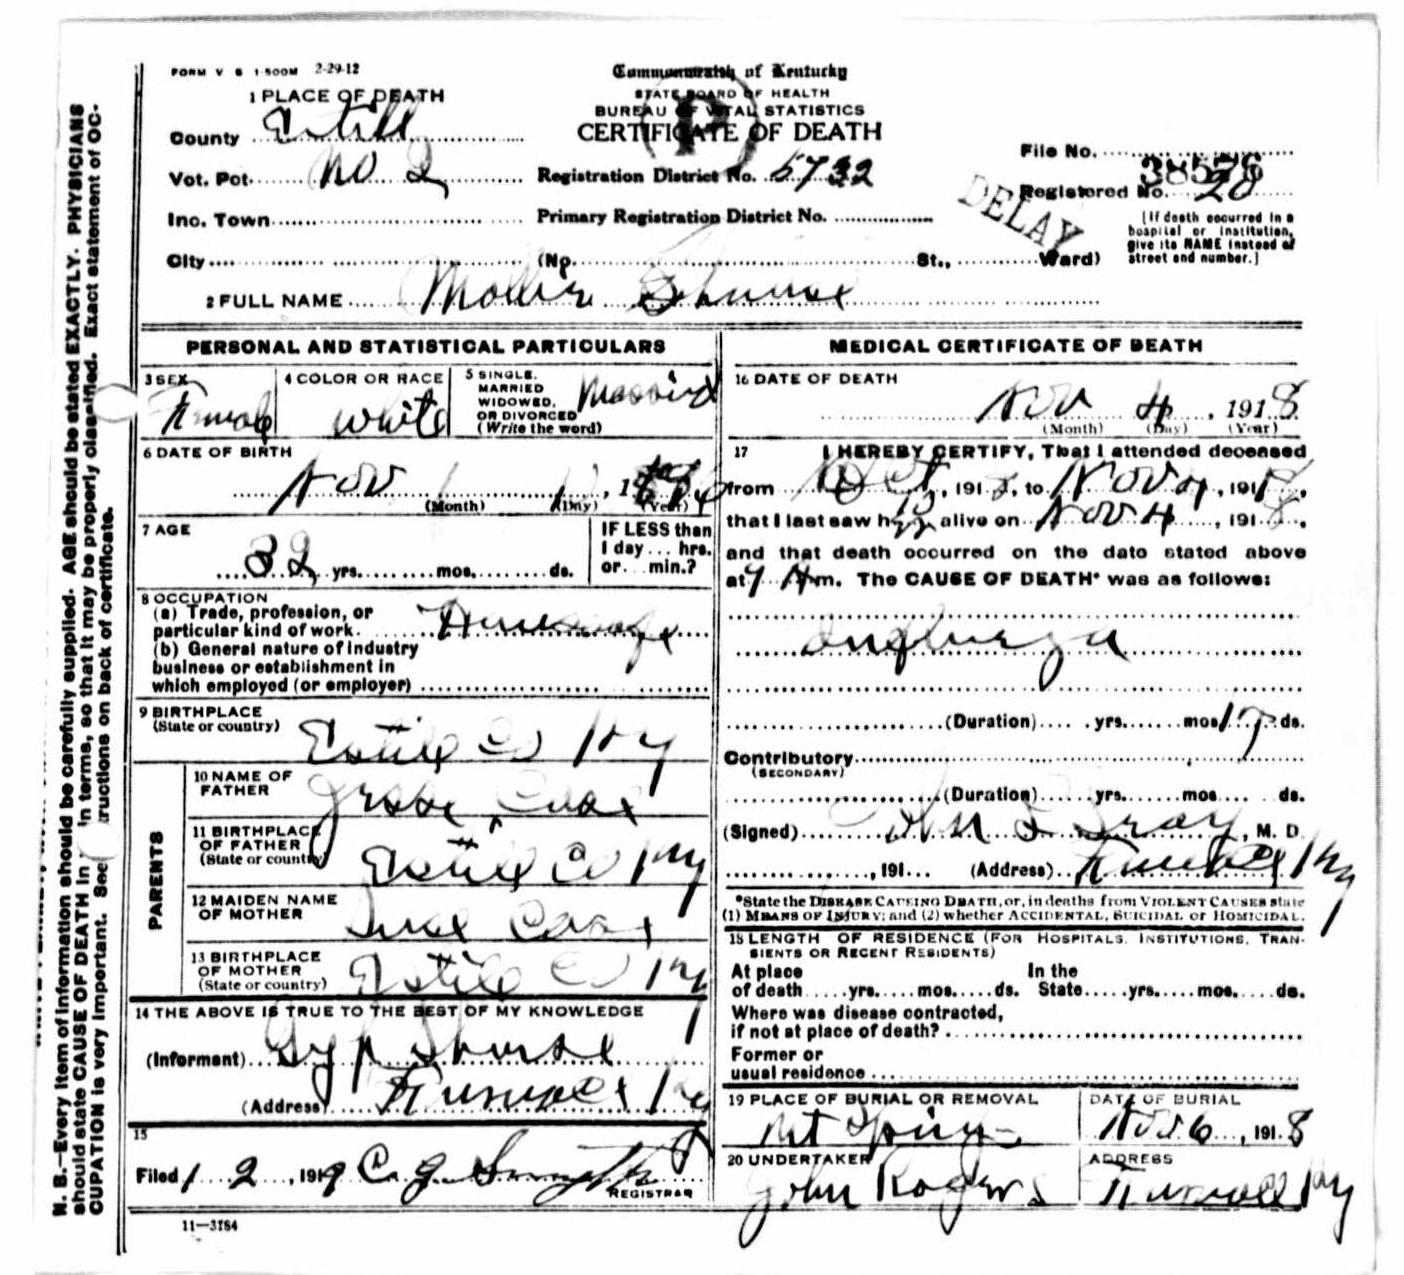 FORM V S 1-500M 2-29-12
Commonwealth of Kentucky
STATE BOARD OF HEALTH
BUREAU OF VITAL STATISTICS
CERTIFICATE OF DEATH
P
1 PLACE OF DEATH
County Estill
Vot. Pct. No 2
Registration District No. 5732
Inc. Town
Primary Registration District No.
City (No. St., Ward)
File No. 38576
Registered No. 20
DELAY
[If death occurred in a
hospital or institution,
give its NAME instead of
street and number.]
2 FULL NAME Mollie
PERSONAL AND STATISTICAL PARTICULARS
3 SEX Female
4 COLOR OR RACE White
5 SINGLE,
MARRIED
WIDOWED,
OR DIVORCED
(Write the word)
Married
6 DATE OF BIRTH
Nov
(Month) (Day) (Year)
7 AGE
32 yrs. mos. ds.
IF LESS than
1 day ... hrs.
or ... min.?
8 OCCUPATION
(a) Trade, profession, or
particular kind of work.
(b) General nature of industry
business or establishment in
which employed (or employer)
9 BIRTHPLACE
(State or country) Estill Co Ky
PARENTS
10 NAME OF
FATHER
11 BIRTHPLACE
OF FATHER
(State or country) Estill Co Ky
12 MAIDEN NAME
OF MOTHER
13 BIRTHPLACE
OF MOTHER
(State or country) Estill Co Ky
14 THE ABOVE IS TRUE TO THE BEST OF MY KNOWLEDGE
(Informant)
(Address) Furnace Ky
15
Filed 1 2, 1919 C. G.
REGISTRAR
11-3184
MEDICAL CERTIFICATE OF DEATH
16 DATE OF DEATH
Nov 4, 1918
(Month) (Day) (Year)
17 I HEREBY CERTIFY, That I attended deceased
from Oct, 1918, to Nov 4, 1918,
that I last saw h alive on Nov 4, 1918,
and that death occurred on the date stated above
at m. The CAUSE OF DEATH* was as follows:
Influenza
(Duration) yrs. mos 17 ds.
Contributory
(SECONDARY)
(Duration) yrs. mos ds.
(Signed), M. D.
, 191 (Address) Furnace Ky
*State the DISEASE CAUSING DEATH, or, in deaths from VIOLENT CAUSES state
(1) MEANS OF INJURY; and (2) whether ACCIDENTAL, SUICIDAL or HOMICIDAL.
18 LENGTH OF RESIDENCE (FOR HOSPITALS, INSTITUTIONS, TRAN-
SIENTS OR RECENT RESIDENTS)
At place
of death yrs. mos. ds.
In the
State yrs. mos. ds.
Where was disease contracted,
if not at place of death?
Former or
usual residence
19 PLACE OF BURIAL OR REMOVAL
DATE OF BURIAL
Nov 6, 1918
20 UNDERTAKER
John Rogers
ADDRESS
Furnace Ky
N. B.—Every item of information should be carefully supplied. AGE should be stated EXACTLY. PHYSICIANS
should state CAUSE OF DEATH in terms, so that it may be properly classified. Exact statement of OC-
CUPATION is very important. See tructions on back of certificate.